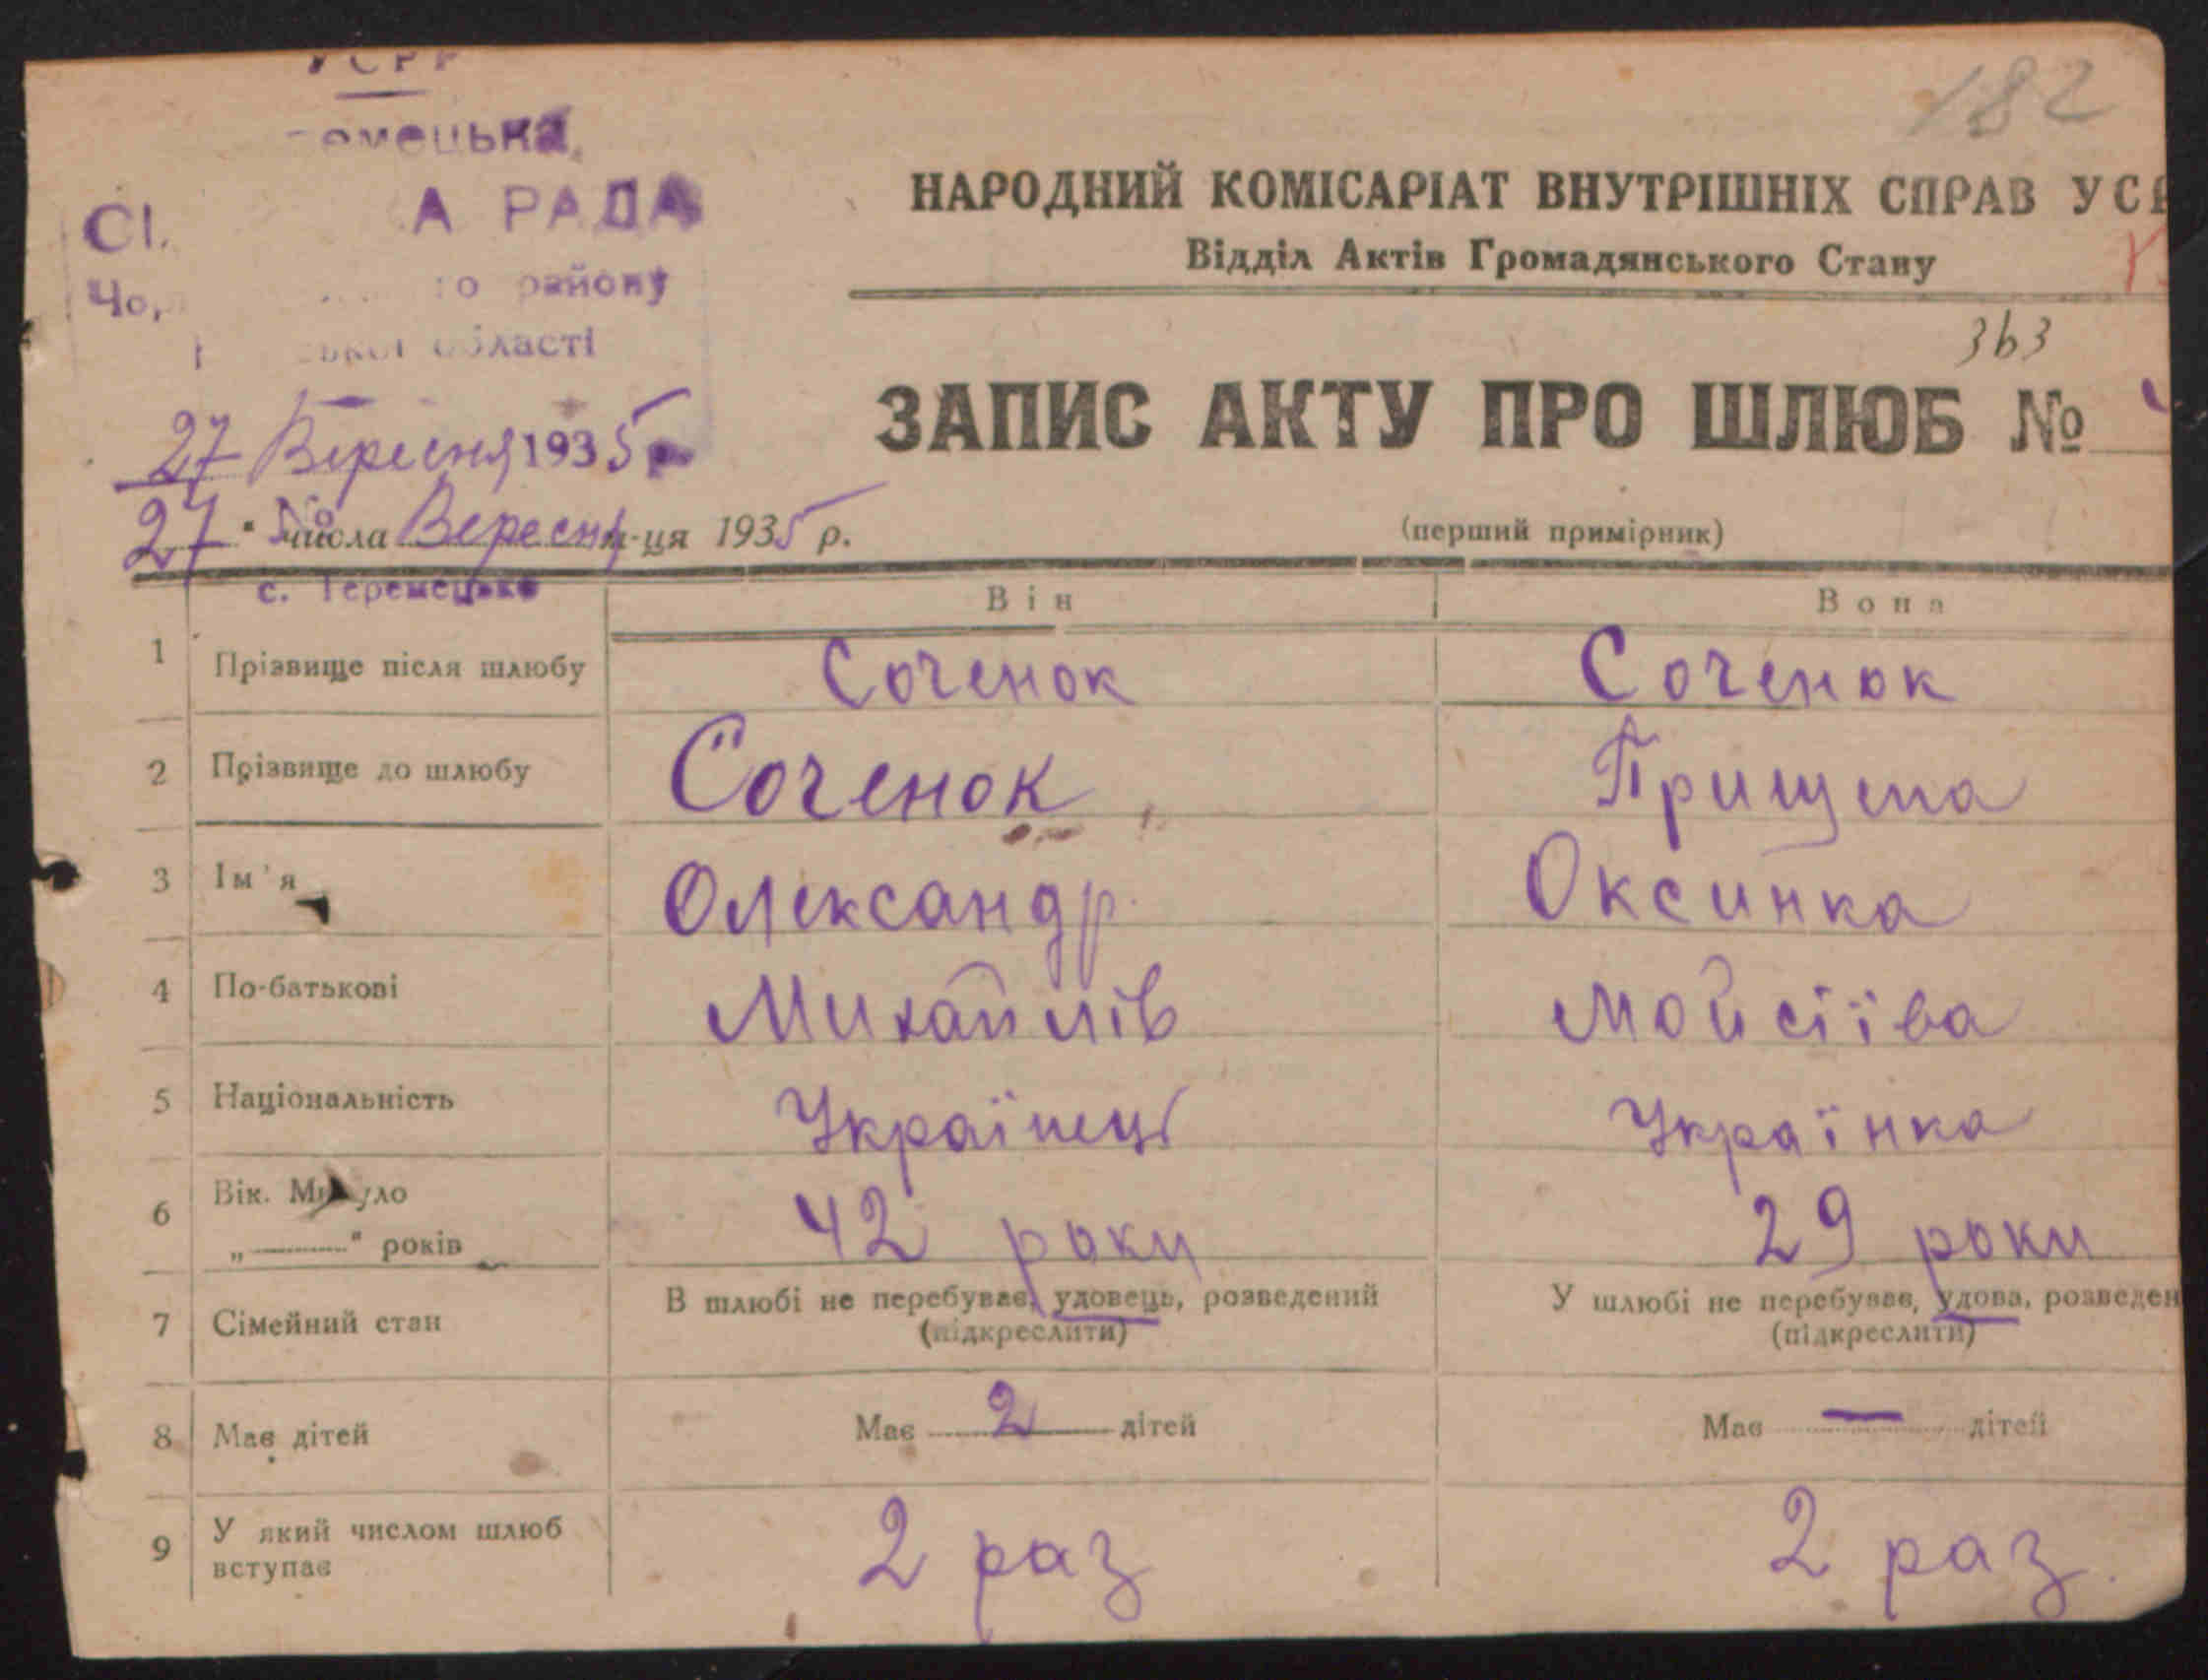 УСРР
182
А РАДА
НАРОДНИЙ КОМІСАРІАТ ВНУТРІШНІХ СПРАВ УСР
Відділ Актів Громадянського Стану
району
області
363
ЗАПИС АКТУ ПРО ШЛЮБ №
27 Вересня 1935 р.
27 " числа Вересня м-ця 1935 р.
(перший примірник)
с. Теремецьке
Він Вона
1 Прізвище після шлюбу Соченок Соченок
2 Прізвище до шлюбу Соченок Прищепа
3 Ім'я Олександр Оксинка
4 По-батькові Михайлів Мойсіїва
5 Національність Українець Українка
6 Вік. Минуло
„ " років 42 роки 29 роки
7 Сімейний стан В шлюбі не перебуває, удовець, розведений У шлюбі не перебуває, удова, розведен
(підкреслити) (підкреслити)
8 Має дітей Має 2 дітей Має — дітей
9 У який числом шлюб
вступає 2 раз 2 раз